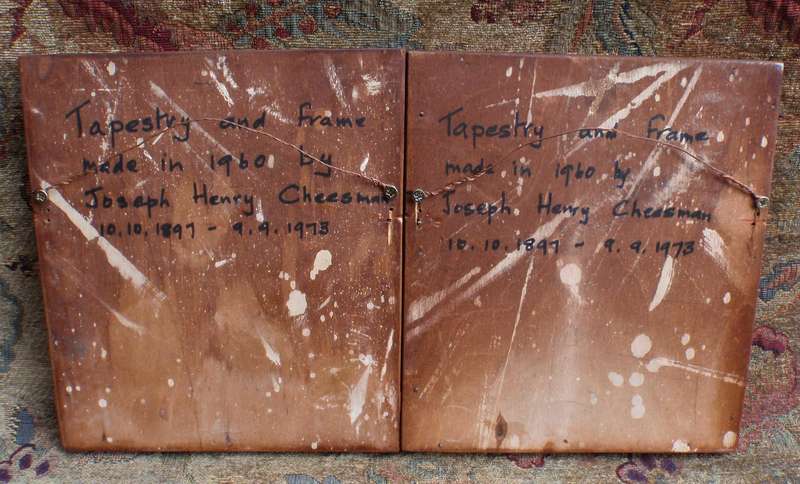 Tapestry and frame
made in 1960 by
Joseph Henry Cheesman
10.10.1897 - 9.9.1973
Tapestry and frame
made in 1960 by
Joseph Henry Cheesman
10.10.1897 - 9.9.1973